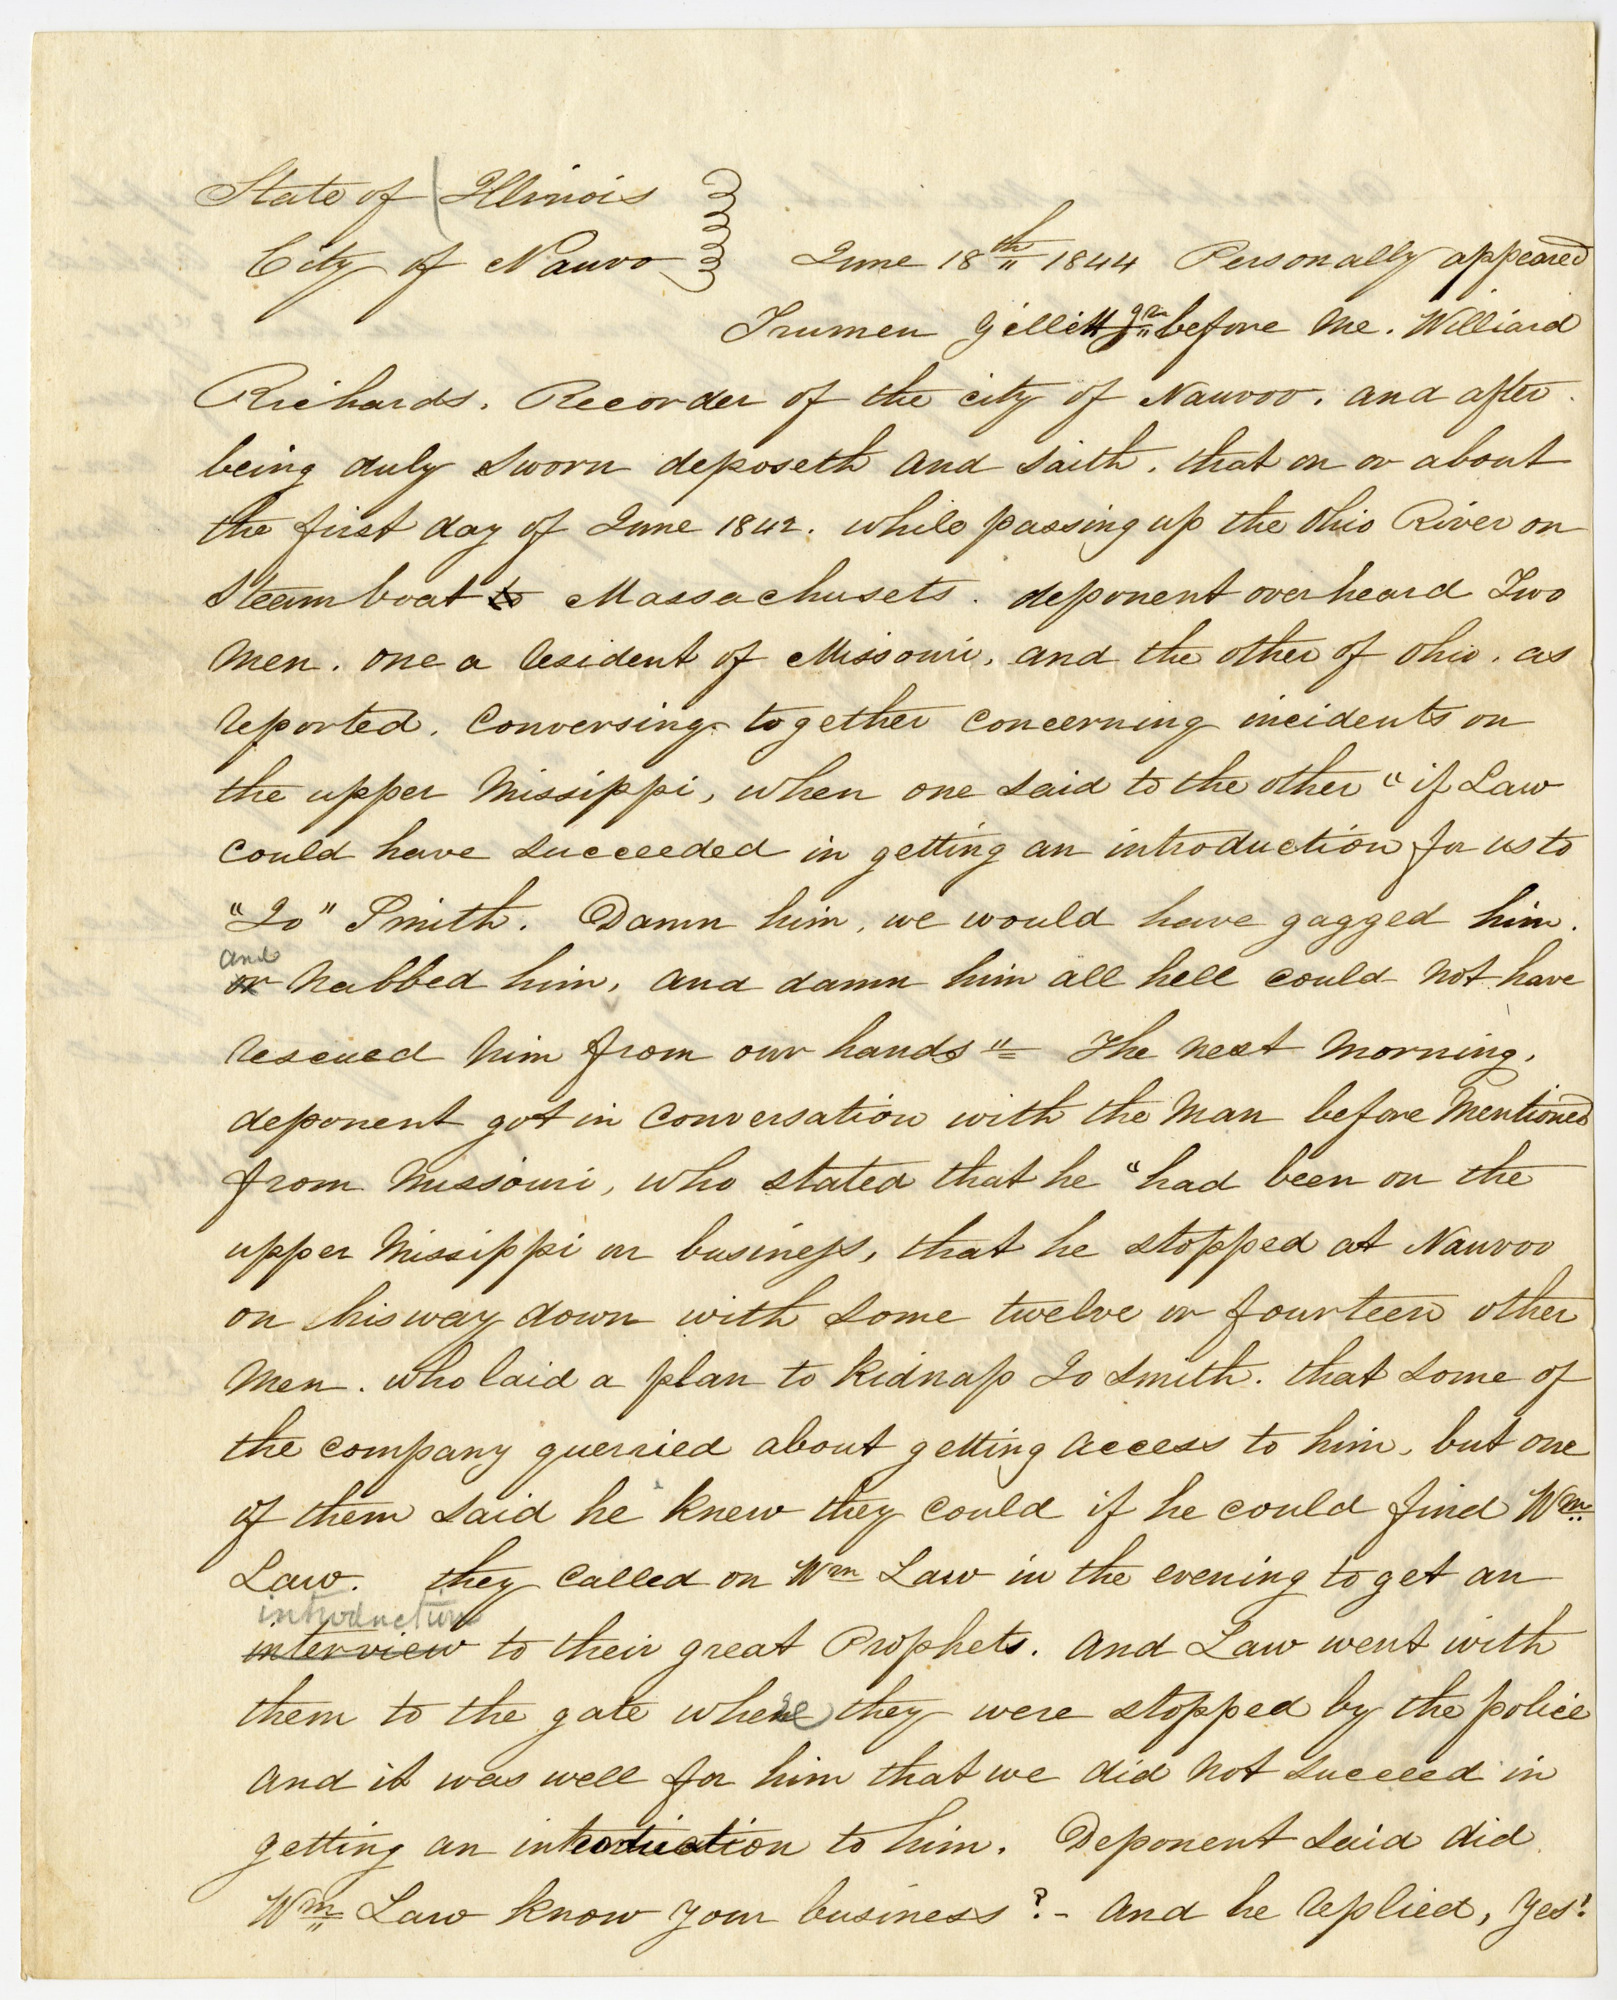 State of Illinois
City of Nauvo June 18th 1844 Personally appeared
Trumen Gillett Jr before me. Williard
Richards. Recorder of the city of Nauvoo. and after
being duly sworn deposeth and saith. that on or about
the first day of June 1842. while passing up the Ohio River on
Steamboat to Massachusets. deponent overheard Two
men. one a resident of Missouri. and the other of Ohio. as
reported. conversing together concerning incidents on
the upper Missippi, when one said to the other "if Law
could have succeeded in getting an introduction for us to
"Jo" Smith. Damn him, we would have gagged him.
and
or nabbed him, and damn him all hell could not have
rescued him from our hands" The next morning,
deponent got in conversation with the man before mentioned
from Missouri, who stated that he "had been on the
upper Missippi on business, that he stopped at Nauvoo
on his way down with some twelve or fourteen other
men. who laid a plan to kidnap Jo Smith. that some of
the company querried about getting access to him. but one
of them said he knew they could if he could find Wm
Law. they called on Wm Law in the evening to get an
introduction
interview to their great Prophets. and Law went with
them to the gate where they were stopped by the police
and it was well for him that we did not succeed in
getting an introduction to him. Deponent said did
Wm Law know your business?- and he replied, yes!